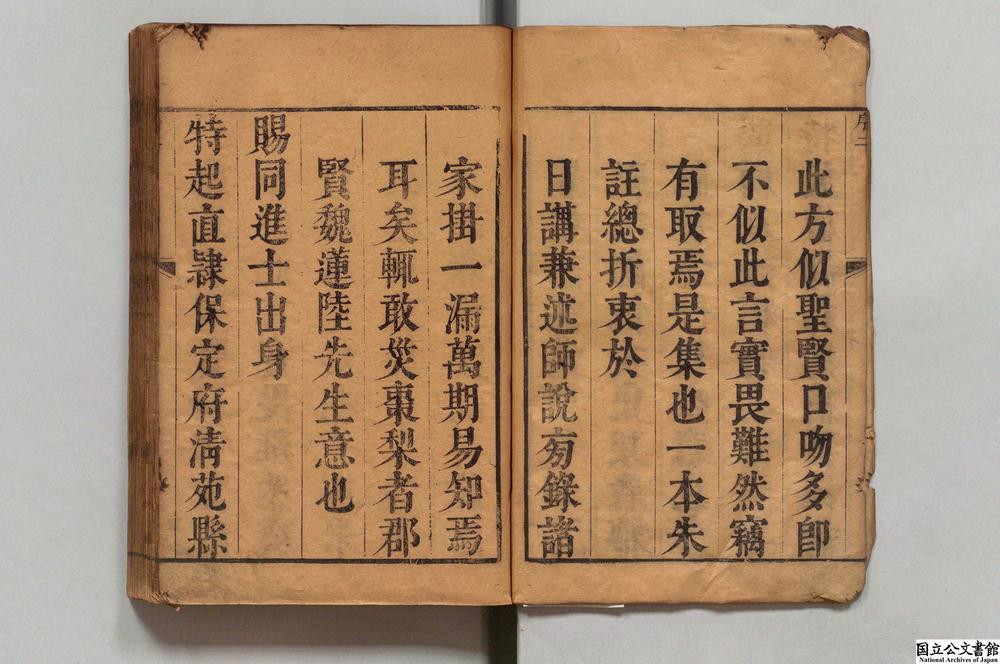 此方似聖賢口吻多即
不似此言實畏難然竊
有取焉是集也一本朱
註總折衷於
日講兼述師說旁錄諸
家掛一漏萬期易知焉
耳矣輒敢災棗梨者郡
賢魏蓮陸先生意也
賜同進士出身
特起直隷保定府清苑縣
国立公文書館
National Archives of Japan